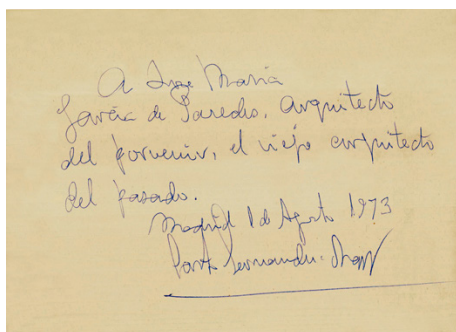 A José María
García de Paredes, arquitecto
del porvenir, el viejo arquitecto
del pasado.
Madrid 1 de Agosto 1973
Fernández-Shaw